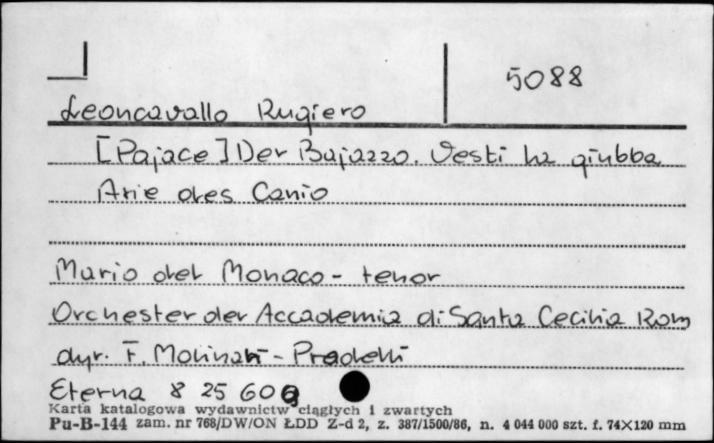 5088
Leoncavallo Rugiero
[Pajace] Der Bajazzo. Vesti la giubba
Arie des Canio
Mario del Monaco - tenor
Orchester der Accademia di Santa Cecilia Rom
dyr. F. Molinari - Pradelli
Eterna 8 25 608
Karta katalogowa wydawnictw ciągłych i zwartych
Pu-B-144 zam. nr 768/DW/ON ŁDD Z-d 2, z. 387/1500/86, n. 4 044 000 szt. f. 74X120 mm